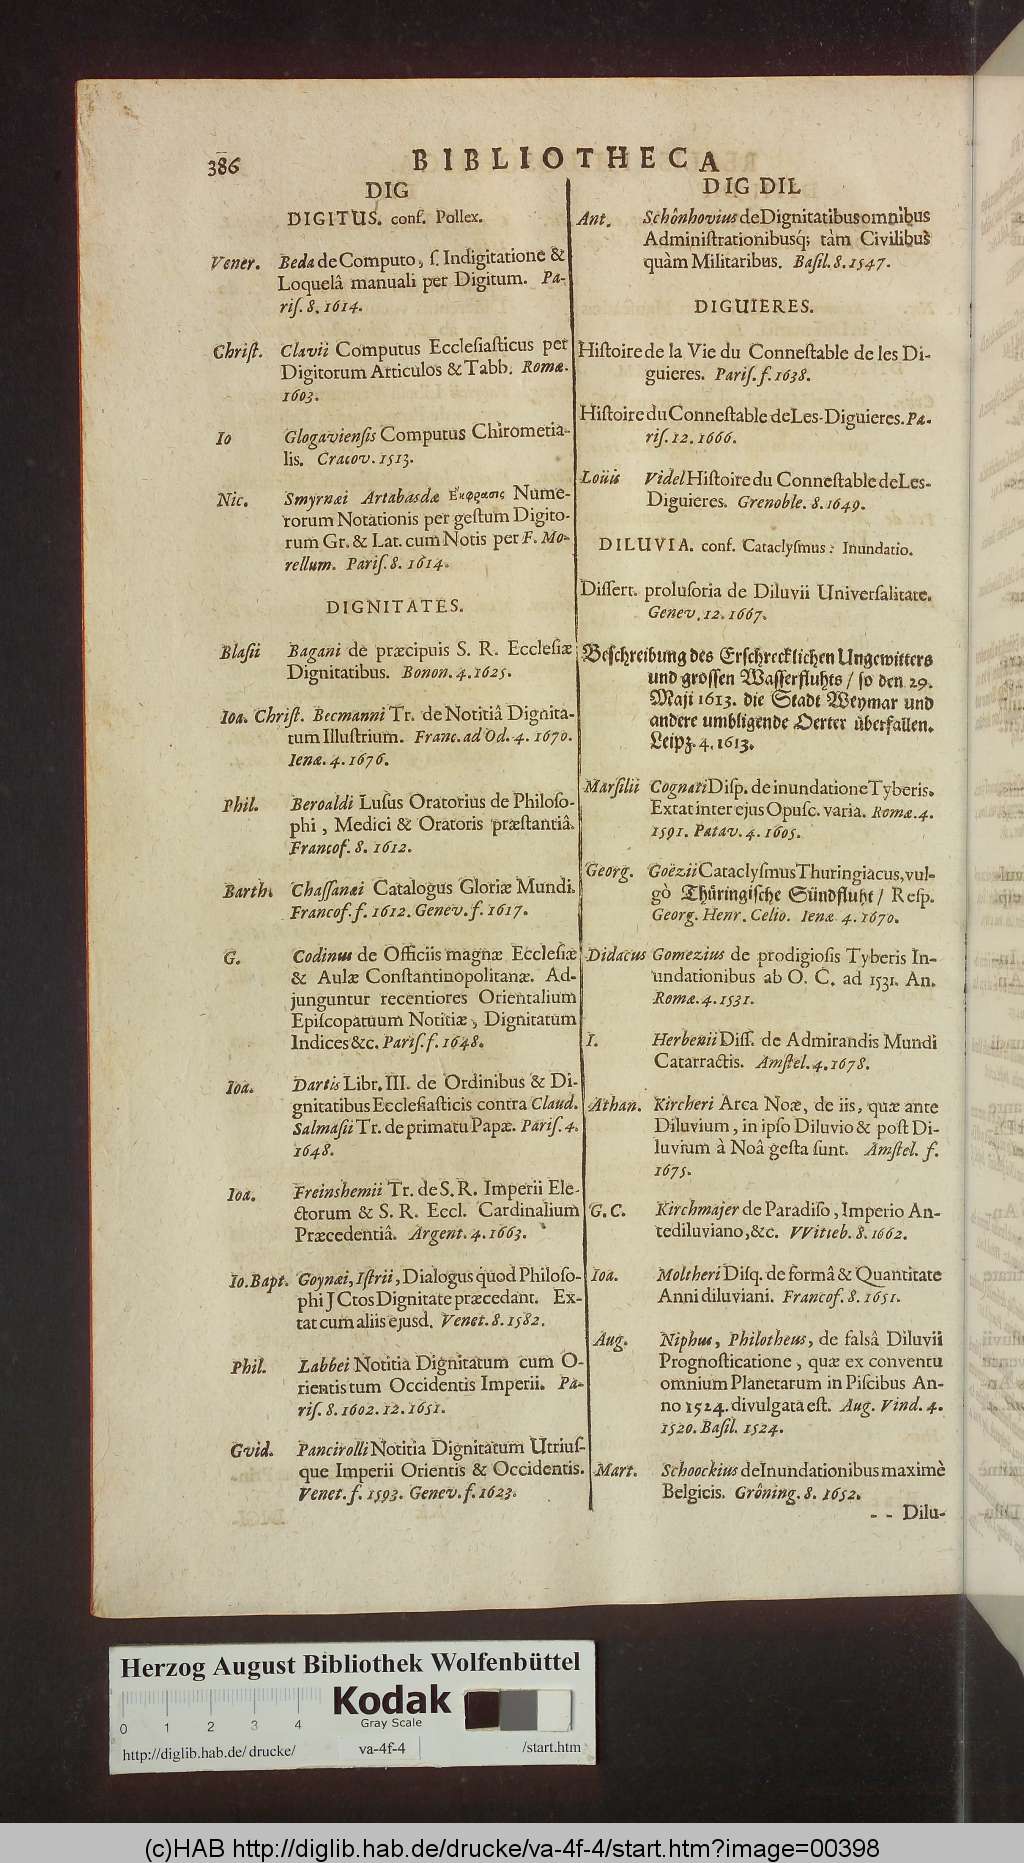 386
BIBLIOTHECA
DIG
DIGITUS. conf. Pollex.
Vener. Beda de Computo, ſ. Indigitatione &
Loquelâ manuali per Digitum. Pa-
riſ. 8. 1614.
Chriſt. Clavii Computus Eccleſiaſticus per
Digitorum Articulos & Tabb. Romæ.
1603.
Io Glogavienſis Computus Chirometia-
lis. Cracov. 1513.
Nic. Smyrnæi Artabasdæ Εκφρασις Nume-
rorum Notationis per geſtum Digito-
rum Gr. & Lat. cum Notis per F. Mo-
rellum. Pariſ. 8. 1614.
DIGNITATES.
Blaſii Bagani de præcipuis S. R. Eccleſiæ
Dignitatibus. Bonon. 4. 1625.
Ioa. Chriſt. Becmanni Tr. de Notitiâ Dignita-
tum Illuſtrium. Franc. ad Od. 4. 1670.
Ienæ. 4. 1676.
Phil. Beroaldi Luſus Oratorius de Philoſo-
phi, Medici & Oratoris præſtantiâ.
Francof. 8. 1612.
Barth. Chaſſanæi Catalogus Gloriæ Mundi.
Francof. f. 1612. Genev. f. 1617.
G. Codinus de Officiis magnæ Eccleſiæ
& Aulæ Conſtantinopolitanæ. Ad-
junguntur recentiores Orientalium
Epiſcopatuum Notitiæ, Dignitatum
Indices &c. Pariſ. f. 1648.
Ioa. Dartis Libr. III. de Ordinibus & Di-
gnitatibus Eccleſiaſticis contra Claud.
Salmaſii Tr. de primatu Papæ. Pariſ. 4.
1648.
Ioa. Freinshemii Tr. de S. R. Imperii Ele-
ctorum & S. R. Eccl. Cardinalium
Præcedentiâ. Argent. 4. 1663.
Io. Bapt. Goynæi, Iſtrii, Dialogus quod Philoſo-
phi J Ctos Dignitate præcedant. Ex-
tat cum aliis ejusd. Venet. 8. 1582.
Phil. Labbei Notitia Dignitatum cum O-
rientis tum Occidentis Imperii. Pa-
riſ. 8. 1602. 12. 1651.
Gvid. Pancirolli Notitia Dignitatum Utriuſ-
que Imperii Orientis & Occidentis.
Venet. f. 1593. Genev. f. 1623.
DIG DIL
Ant. Schônhovius de Dignitatibus omnibus
Adminiſtrationibusq́; tàm Civilibus
quàm Militaribus. Baſil. 8. 1547.
DIGUIERES.
Hiſtoire de la Vie du Conneſtable de les Di-
guieres. Pariſ. f. 1638.
Hiſtoire du Conneſtable de Les-Diguieres. Pa-
riſ. 12. 1666.
Loüis Videl Hiſtoire du Conneſtable de Les-
Diguieres. Grenoble. 8. 1649.
DILUVIA. conf. Cataclyſmus: Inundatio.
Diſſert. proluſoria de Diluvii Univerſalitate.
Genev. 12. 1667.
Beſchreibung des Erſchrecklichen Ungewitters
und groſſen Waſſerfluhts / ſo den 29.
Maji 1613. die Stadt Weymar und
andere umbligende Oerter überfallen.
Leipz. 4. 1613.
Marſilii Cognati Diſp. de inundatione Tyberis.
Extat inter ejus Opuſc. varia. Romæ. 4.
1591. Patav. 4. 1605.
Georg. Goëzii Cataclyſmus Thuringiacus, vul-
gò Thüringiſche Sündfluht / Reſp.
Georg. Henr. Celio. Ienæ 4. 1670.
Didacus Gomezius de prodigioſis Tyberis In-
undationibus ab O. C. ad 1531. An.
Romæ. 4. 1531.
I. Herbenii Diſſ. de Admirandis Mundi
Catarractis. Amſtel. 4. 1678.
Athan. Kircheri Arca Noæ, de iis, quæ ante
Diluvium, in ipſo Diluvio & poſt Di-
luvium à Noâ geſta ſunt. Amſtel. f.
1675.
G. C. Kirchmajer de Paradiſo, Imperio An-
tediluviano, &c. VVitteb. 8. 1662.
Ioa. Moltheri Diſq. de formâ & Quantitate
Anni diluviani. Francof. 8. 1651.
Aug. Niphus, Philotheus, de falsâ Diluvii
Prognoſticatione, quæ ex conventu
omnium Planetarum in Piſcibus An-
no 1524. divulgata eſt. Aug. Vind. 4.
1520. Baſil. 1524.
Mart. Schoockius de Inundationibus maximè
Belgicis. Grôning. 8. 1652.
- - Dilu-
Herzog August Bibliothek Wolfenbüttel
Kodak
Gray Scale
0 1 2 3 4
http://diglib.hab.de/ drucke/ va-4f-4 /start.htm
(c)HAB http://diglib.hab.de/drucke/va-4f-4/start.htm?image=00398